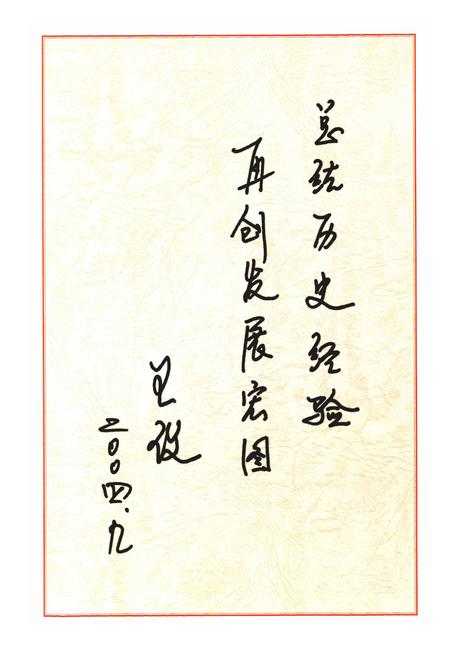 总结历史经验
再创发展宏图
王俊
二〇〇四.九